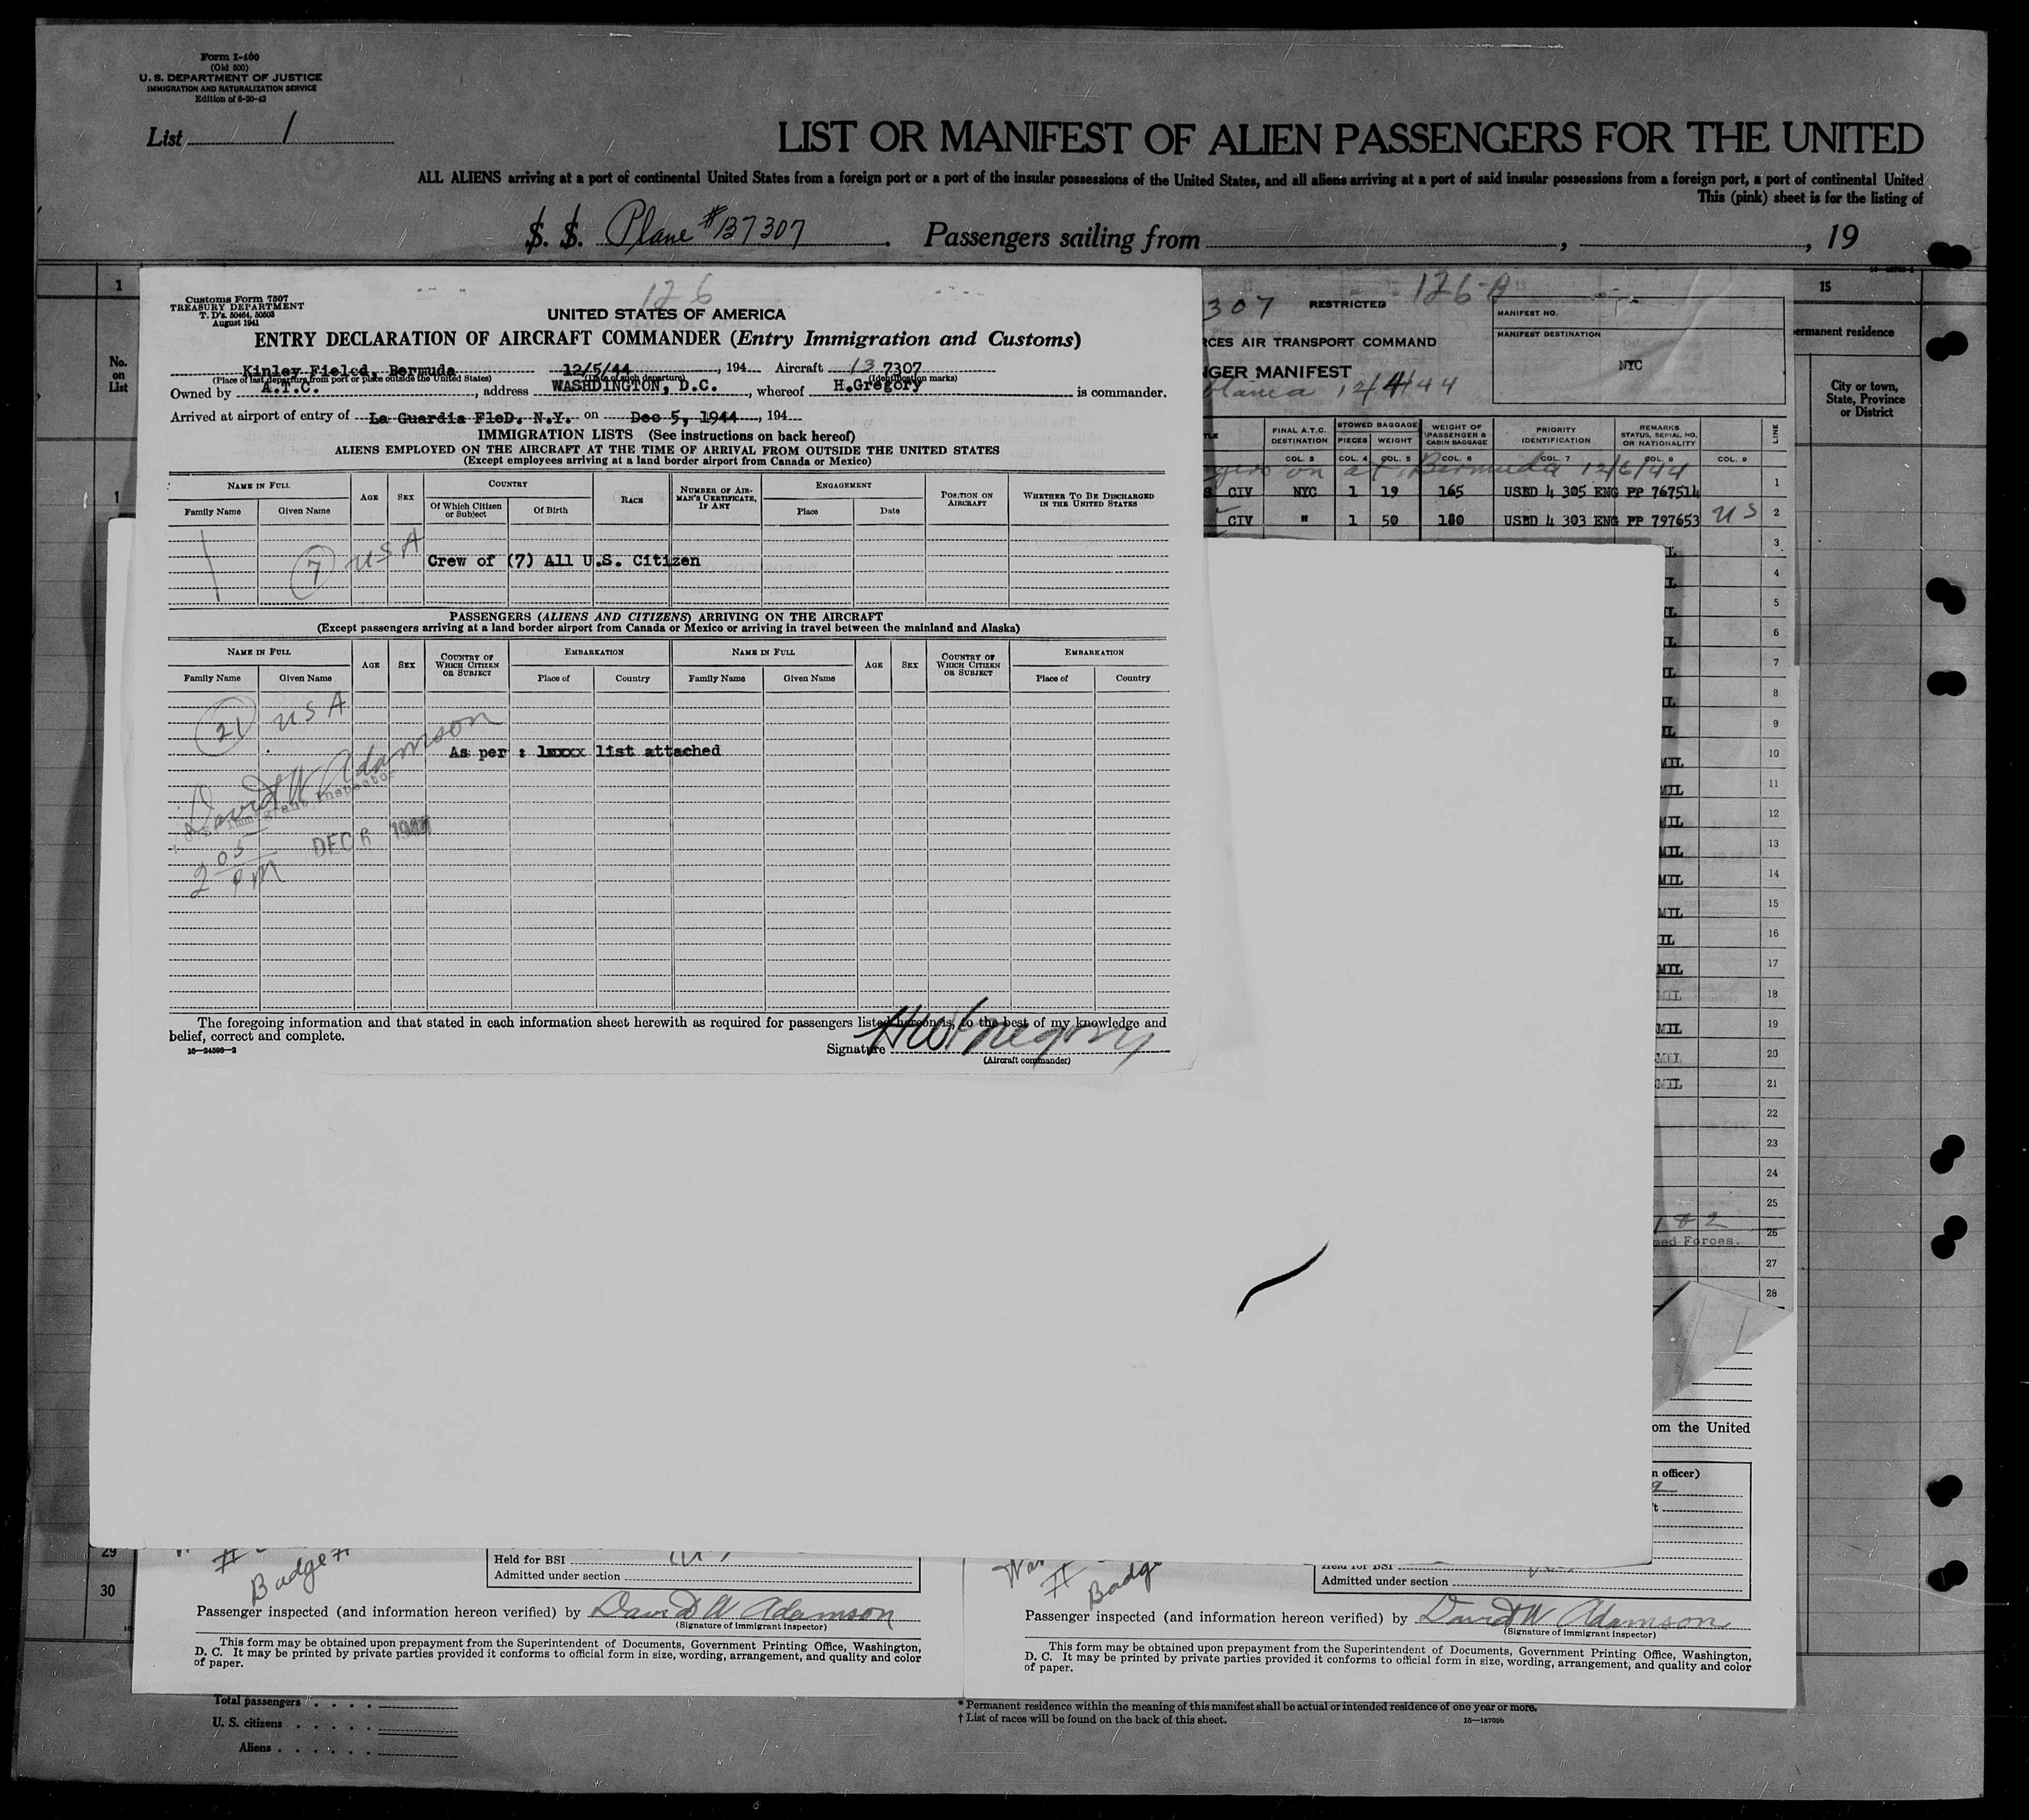 Form I-400
(Old 500)
U. S. DEPARTMENT OF JUSTICE
IMMIGRATION AND NATURALIZATION SERVICE
Edition of 6-20-42
List 1
LIST OR MANIFEST OF ALIEN PASSENGERS FOR THE UNITED
ALL ALIENS arriving at a port of continental United States from a foreign port or a port of the insular possessions of the United States, and all aliens arriving at a port of said insular possessions from a foreign port, a port of continental United
This (pink) sheet is for the listing of
S. S. Plane #B7307. Passengers sailing from , , 19
1
No.
on
List
1
15
ermanent residence
City or town,
State, Province
or District
126
Customs Form 7507
TREASURY DEPARTMENT
T. D's. 50464, 50503
August 1941
UNITED STATES OF AMERICA
ENTRY DECLARATION OF AIRCRAFT COMMANDER (Entry Immigration and Customs)
Kinley Fielcd, Bermuda 12/5/44, 194 Aircraft 13 7307
(Place of last departure from port or place outside the United States) (Date of such departure) (Identification marks)
Owned by A.T.C., address WASHDINGTON, D.C., whereof H.Gregory is commander.
Arrived at airport of entry of La Guardia FleD. N.Y. on Dec 5, 1944, 194
IMMIGRATION LISTS (See instructions on back hereof)
ALIENS EMPLOYED ON THE AIRCRAFT AT THE TIME OF ARRIVAL FROM OUTSIDE THE UNITED STATES
(Except employees arriving at a land border airport from Canada or Mexico)
NAME IN FULL AGE SEX COUNTRY RACE NUMBER OF AIRMAN'S CERTIFICATE, IF ANY ENGAGEMENT POSITION ON AIRCRAFT WHETHER TO BE DISCHARGED IN THE UNITED STATES
Family Name Given Name Of Which Citizen or Subject Of Birth Place Date
7 USA
Crew of (7) All U.S. Citizen
PASSENGERS (ALIENS AND CITIZENS) ARRIVING ON THE AIRCRAFT
(Except passengers arriving at a land border airport from Canada or Mexico or arriving in travel between the mainland and Alaska)
NAME IN FULL AGE SEX COUNTRY OF WHICH CITIZEN OR SUBJECT EMBARKATION NAME IN FULL AGE SEX COUNTRY OF WHICH CITIZEN OR SUBJECT EMBARKATION
Family Name Given Name Place of Country Family Name Given Name Place of Country
21 USA
As per : lxxxx list attached
David W Adamson
U.S. Immigrant Inspector
DEC 6 1944
2 05 PM
The foregoing information and that stated in each information sheet herewith as required for passengers listed hereon is, to the best of my knowledge and
belief, correct and complete.
16—24598-2
Signature HW Gregory
(Aircraft commander)
307 RESTRICTED 126-A
MANIFEST NO.
MANIFEST DESTINATION
NYC
RCES AIR TRANSPORT COMMAND
NGER MANIFEST
12/4/44
FINAL A.T.C. DESTINATION STOWED BAGGAGE PIECES WEIGHT WEIGHT OF PASSENGER & CABIN BAGGAGE PRIORITY IDENTIFICATION REMARKS STATUS, SERIAL NO. OR NATIONALITY LINE
COL. 3 COL. 4 COL. 5 COL. 6 COL. 7 COL. 8 COL. 9
on at Bermuda 12/6/44
S CIV NYC 1 19 165 USBD 4 305 ENG PP 767514 1
CIV " 1 50 180 USBD 4 303 ENG PP 797653 US 2
3
4
5
6
7
8
9
MIL 10
MIL 11
MIL 12
MIL 13
MIL 14
MIL 15
IL 16
MIL 17
MIL 18
MIL 19
MIL 20
MIL 21
22
23
24
25
26
med Forces.
27
28
om the United
n officer)
29
30
Badge #
Held for BSI
Admitted under section
Passenger inspected (and information hereon verified) by David W Adamson
(Signature of immigrant inspector)
This form may be obtained upon prepayment from the Superintendent of Documents, Government Printing Office, Washington,
D. C. It may be printed by private parties provided it conforms to official form in size, wording, arrangement, and quality and color
of paper.
Badg
Held for BSI
Admitted under section
Passenger inspected (and information hereon verified) by David W Adamson
(Signature of immigrant inspector)
This form may be obtained upon prepayment from the Superintendent of Documents, Government Printing Office, Washington,
D. C. It may be printed by private parties provided it conforms to official form in size, wording, arrangement, and quality and color
of paper.
Total passengers
U. S. citizens
Aliens
* Permanent residence within the meaning of this manifest shall be actual or intended residence of one year or more.
† List of races will be found on the back of this sheet.
16—18709b